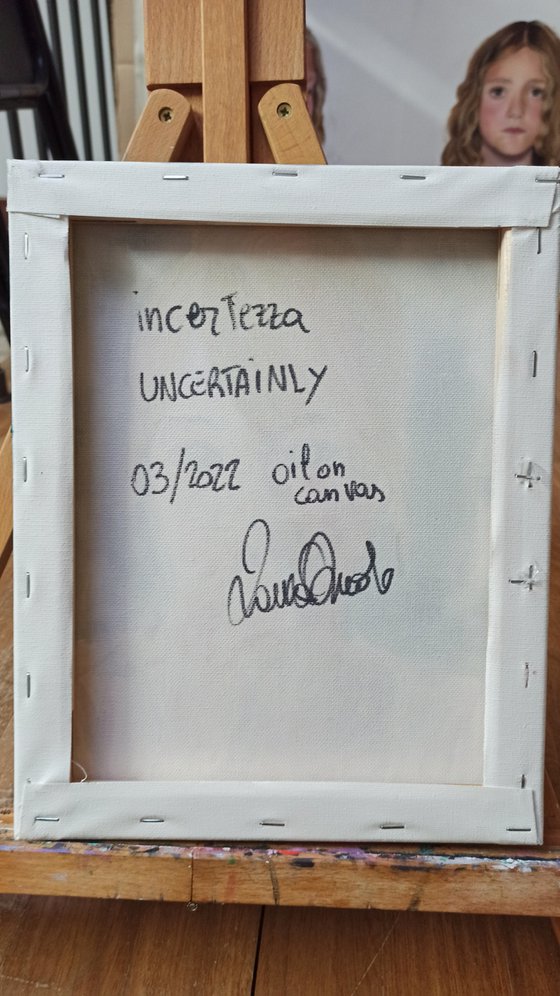 incertezza
UNCERTAINLY
03/2022 oil on
canvas